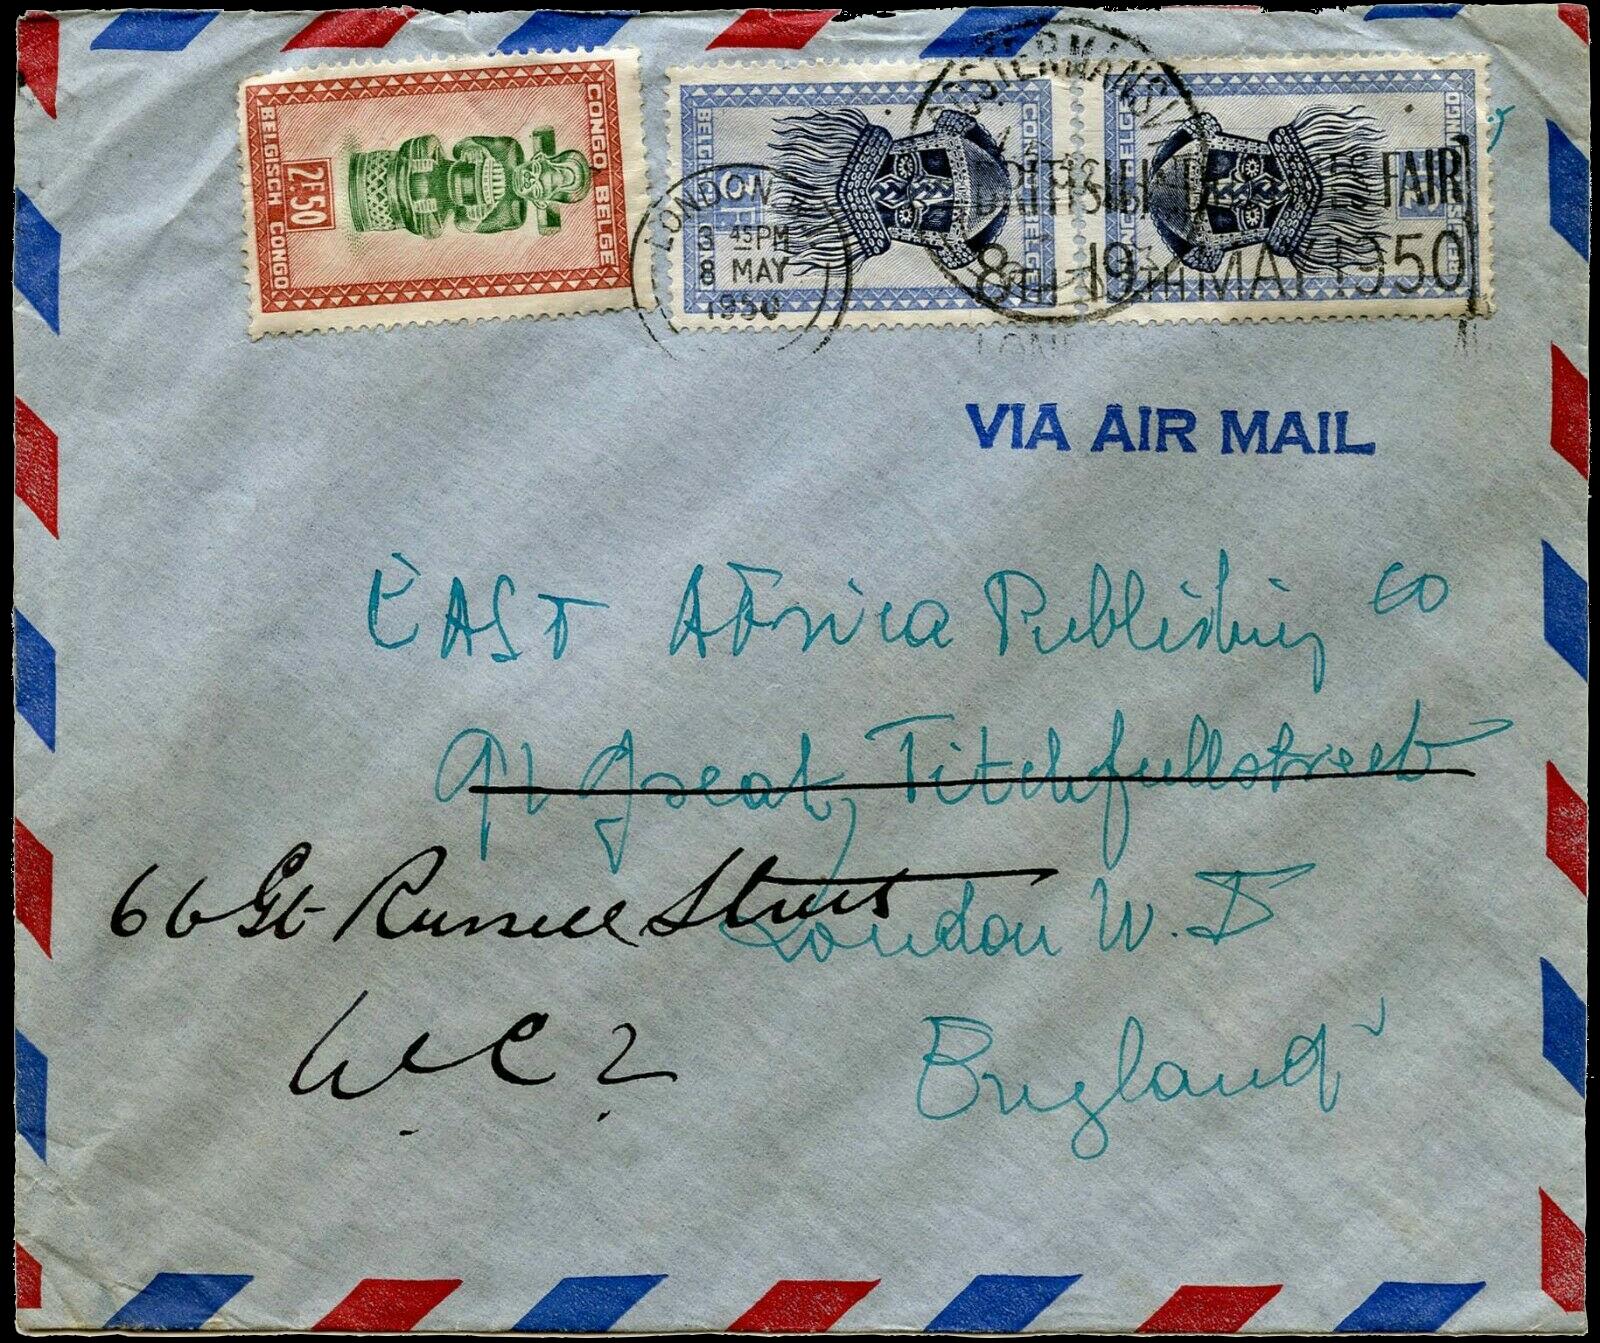 CONGO BELGE
BELGISCH CONGO
2F50
CONGO BELGE
BELGISCH CONGO
CONGO BELGE
COSTERMANSVI
LONDON
3 45PM
8 MAY
1950
BRITISH INDUSTRIES FAIR
8TH-19TH MAY 1950
VIA AIR MAIL
EAST AFrica Publishing Co
91 Great Titchfullstreet
66 Gt Russell Street
London W.1
W.C. 2
England